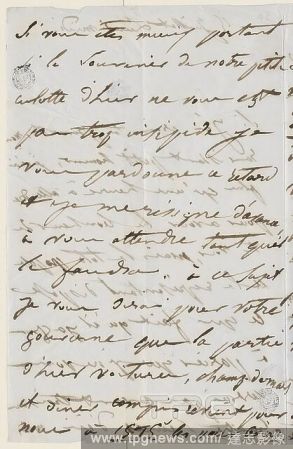 Si vous êtes mieux portant
si le Souvenir de notre petite
culotte d'hier ne vous est
pas trop insipide je
vous pardonne ce retard
et je me résigne d'avance
à vous attendre tant qu'il
le faudra. à ce sujet
je vous dirai pour votre
gouverne que la partie
d'hier voitures, champ de mars
et dîner compris revient pour
nous à
www.tpgnews.com / 達志影像